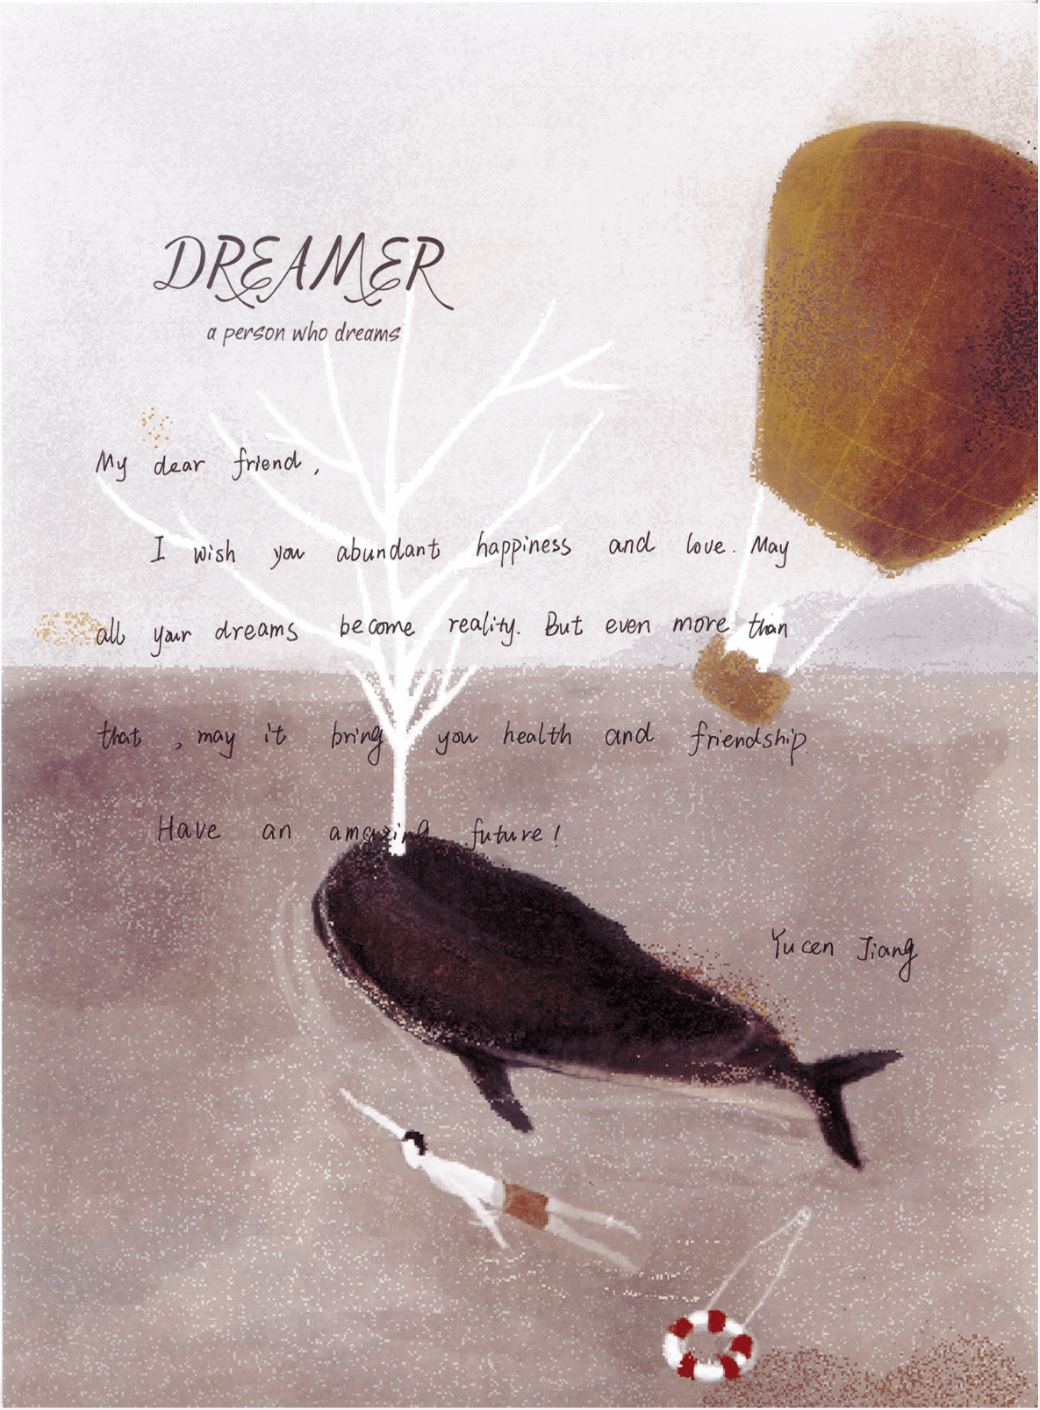 DREAMER
a person who dreams
My dear friend,
I wish you abundant happiness and love. May
all your dreams become reality. But even more than
that, may it bring you health and friendship.
Have an amazing future!
Yucen Jiang